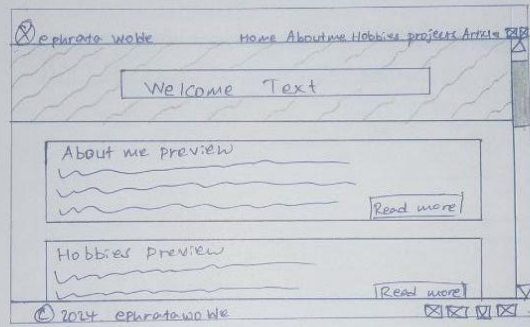 ephrata woble Home About me Hobbies projects Article
Welcome Text
About me preview
Read more
Hobbies preview
Read more
© 2024 ephrata woble